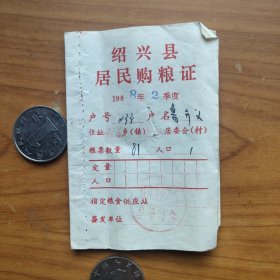 绍兴县
居民购粮证
198 8年 2 季度
户号 034 户名 鲁
住址 乡(镇) 居委会(村)
粮票数量 81 人口 1
定量
人口
指定粮食供应站
签发单位